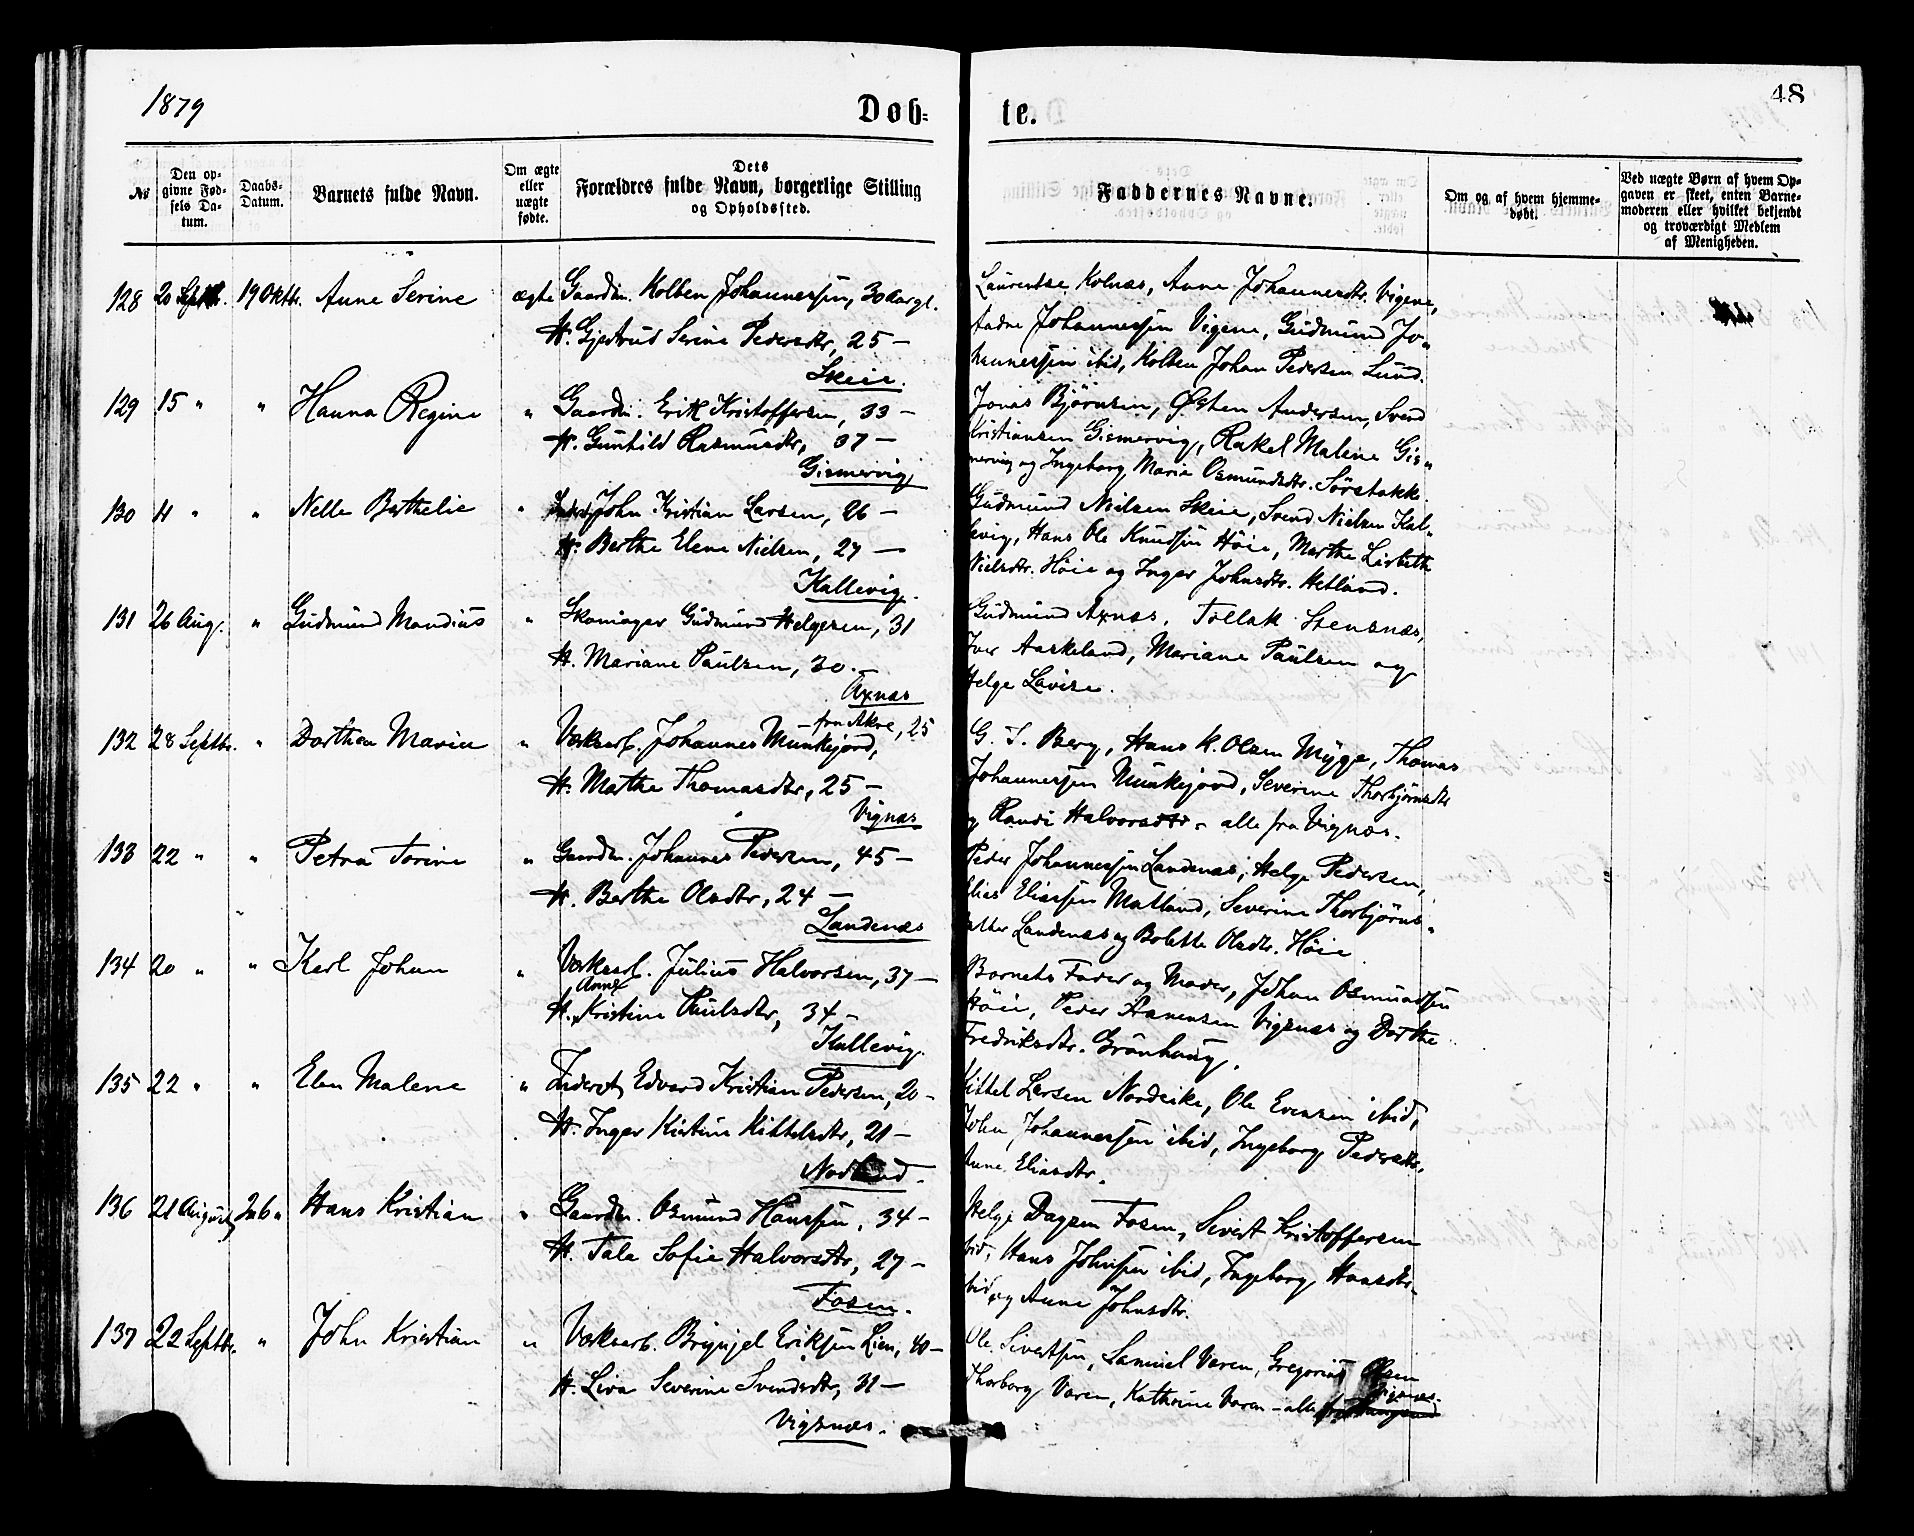 1879
Døb=
te.
48
№
Den op-
givne Fød-
sels Da-
tum.
Daabs-
Datum.
Barnets fulde Navn.
Om ægte
eller
uægte
fødte.
Dets
Forældres fulde Navn, borgerlige Stilling
og Opholdssted.
Faddernes Navne.
Om og af hvem hjemme-
døbt.
Ved uægte Børn af hvem Op-
gaven er skeet, enten Barne-
moderen eller hvilket bekjendt
og troværdigt Medlem
af Menigheden.
128 20 Septb. 19 Oktb. Anne Serine ægte Gaardm. Kolben Johannessen, 30 Aar gl.
H. Gjertrud Serine Pedersdtr, 25 —
Skeie.
Laurentse Kolnæs, Anne Johannesdtr. Vigene,
Aadne Johannessen Vigene, Gudmund Jo-
hannessen ibid, Kolben Johan Pedersen Lund.
129 15 " " Hanna Regine " Gaardm. Erik Kristoffersen, 33 —
H. Gunhild Rasmusdtr, 37 —
Gismervig
Jonas Bjørnsen, Østen Andersen, Svend
Kristiansen Gismervig, Rakel Malene Gis-
mervig og Ingeborg Marie Osmundsdtr. Sørstokke.
130 4 " " Nelle Berthelie " John Kristian Larsen, 26 —
H. Berthe Elene Nielsen, 27 —
Kallevig.
Gudmund Nielsen Skeie, Svend Nielsen Kal-
levig, Hans Ole Knudsen Höie, Marthe Lisbeth
Nielsdtr. Höie og Inger Johnsdtr. Hetland.
131 26 Aug. " Gudmund Mandius " Skomager Gudmund Helgesen, 31
H. Mariane Paulsen, 30 —
Axnæs
Gudmund Axnæs, Tollak Stensnæs,
Iver Aaskeland, Mariane Paulsen og
Helge Lavise.
132 28 Septbr. " Dorthea Marie " Værksarb. Johannes Munkejord, — fra Akre, 25
H. Marthe Thomasdtr, 25 —
Vignæs
G. T. Berg, Hans K. Olsen Myge, Thomas
Johannessen Munkejord, Severine Thorbjørnsdtr
og Randi Halvorsdtr — alle fra Vignæs.
133 22 " " Petra Torine " Gaardm. Johannes Pedersen, 45 —
H. Berthe Olsdtr, 24 —
Landenæs
Peder Johannessen Landenæs, Helge Pedersen,
Elias Eliassen Matland, Severine Thorbjørns-
datter Landenæs og Bolette Olsdtr. Höie.
134 20 " " Karl Johan " Værksarb. Julius Halvorsen, 37 —
H. Anne Kristine Paulsdtr, 34 —
Kallevig.
Barnets Fader og Moder, Johan Osmundsen
Höie, Peder Hansen Vigsnæs og Dorthe
Fredriksdtr. Grönhaug.
135 22 " " Elen Malene " Inderst Edvard Kristian Pedersen, 20 —
H. Inger Kistine Kittelsdtr, 21 —
Kittel Larsen Nordeike, Ole Evensen ibid,
John Johannessen ibid, Ingeborg Pedersdtr,
Anne Eliasdtr.
136 21 August 26 " Hans Kristian " Gaardm. Osmund Hanssen, 34 —
H. Tala Sofie Halvorsdtr, 27 —
Fosen.
Helge Dagsen Fosen, Sivert Kristoffersen
ibid, Hans Johnsen ibid, Ingeborg Hansdtr.
ibid, og Anne Johnsdtr.
137 22 Septbr. " John Kristian " Værksarb. Brynjel Eriksen Lien, 40 —
H. Liva Severine Svendsdtr, 31 —
Vigsnæs.
Ole Sivertsen, Samuel Varen, Gregorius Olsen
Thorborg Varen, Kathrine Varen — alle Vigsnæs.